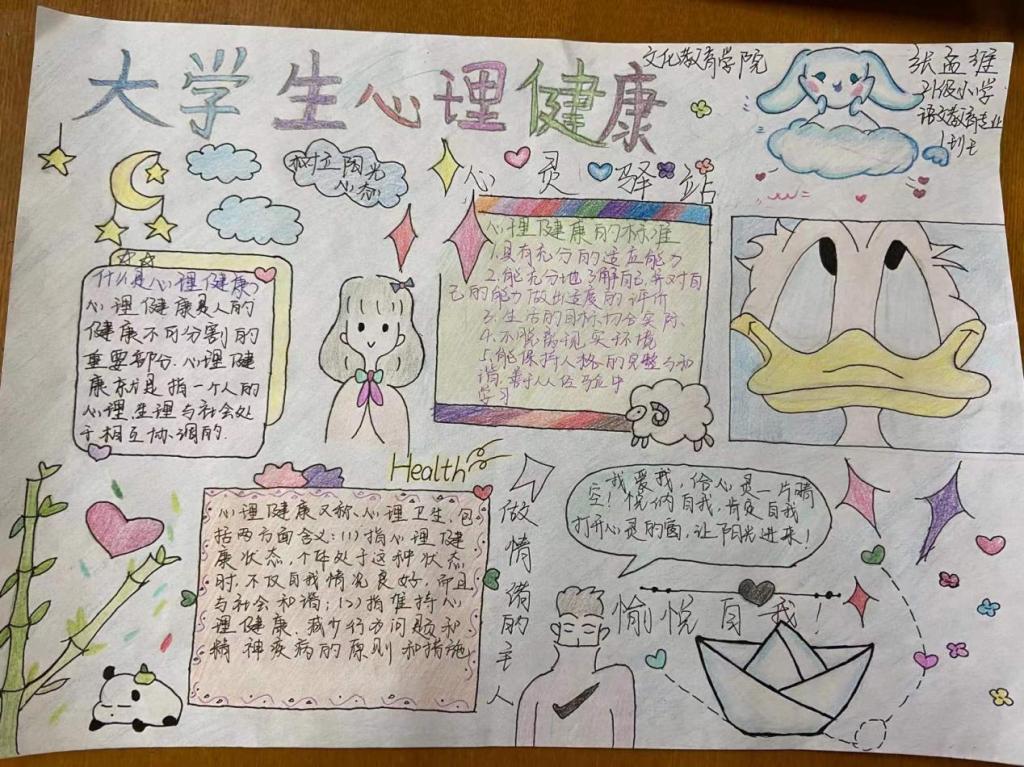 大学生心理健康
文化教育学院
张孟维
21级小学
语文教育专业
1班
树立阳光
心态
心灵驿站
什么是心理健康?
心理健康是人的
健康不可分割的
重要部分.心理健
康就是指一个人的
心理生理与社会处
于相互协调的.
心理健康的标准
1.具有充分的适应能力
2.能充分地了解自己,并对自
己的能力做出适度的评价
3.生活的目标切合实际.
4.不脱离现实环境
5.能保持人格的完整与和
谐.
学习
Health
心理健康又称心理卫生,包
括两方面含义:(1)指心理健
康状态,个体处于这种状态
时,不仅自我情况良好,而且
与社会和谐;(2)指维持心
理健康.减少行为问题和
精神疾病的原则和措施
做情绪的主人
我爱我,给心灵一片晴
空!悦纳自我,肯定自我
打开心灵的窗,让阳光进来!
愉悦自我!